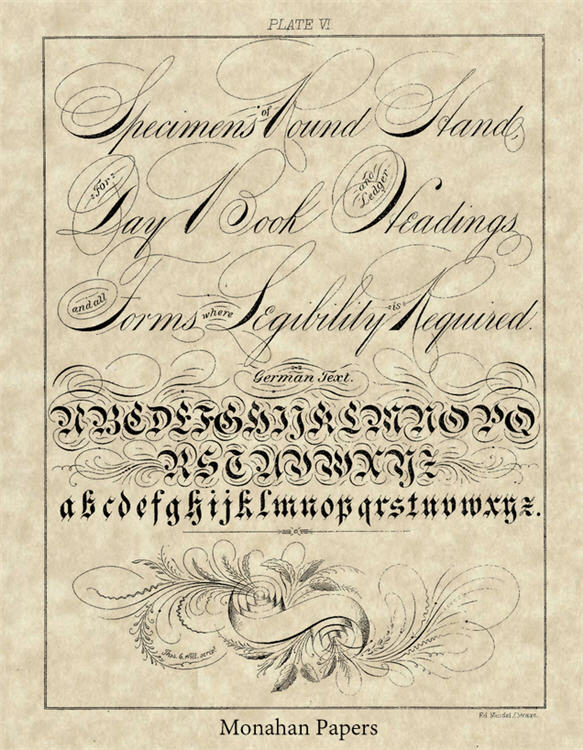 PLATE VI
Specimens of Round Hand,
For Day Book and Ledger Headings,
and all Forms where Legibility is Required.
German Text.
ABCDEFGHIJKLMNOPQ
RSTUVWXYZ
abcdefghijklmnopqrstuvwxyz.
Monahan Papers